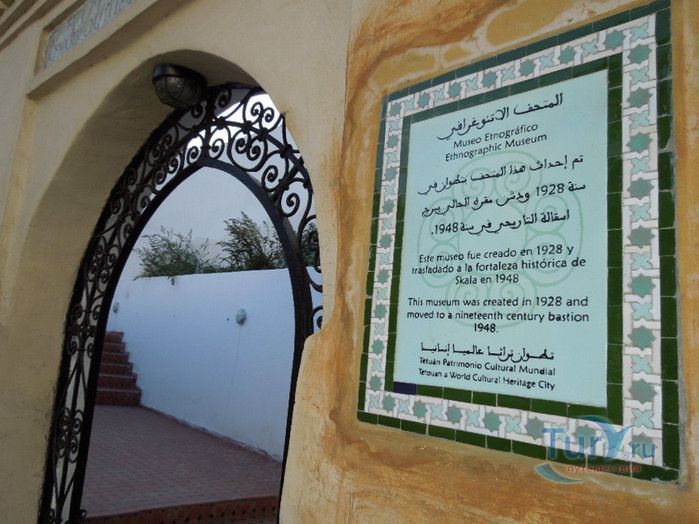 المتحف الاتنوغرافي
Museo Etnográfico
Ethnographic Museum
تم إحداث هذا المتحف بتطوان في
سنة 1928 ودشن مقره الحالي ببرج
اسقالة التاريخي في سنة 1948.
Este museo fue creado en 1928 y
trasladado a la fortaleza histórica de
Skala en 1948
This museum was created in 1928 and
moved to a nineteenth century bastion
1948.
تطوان تراثا عالميا إنسانيا
Tetuán Patrimonio Cultural Mundial
Tetouan a World Cultural Heritage City
Tury.ru